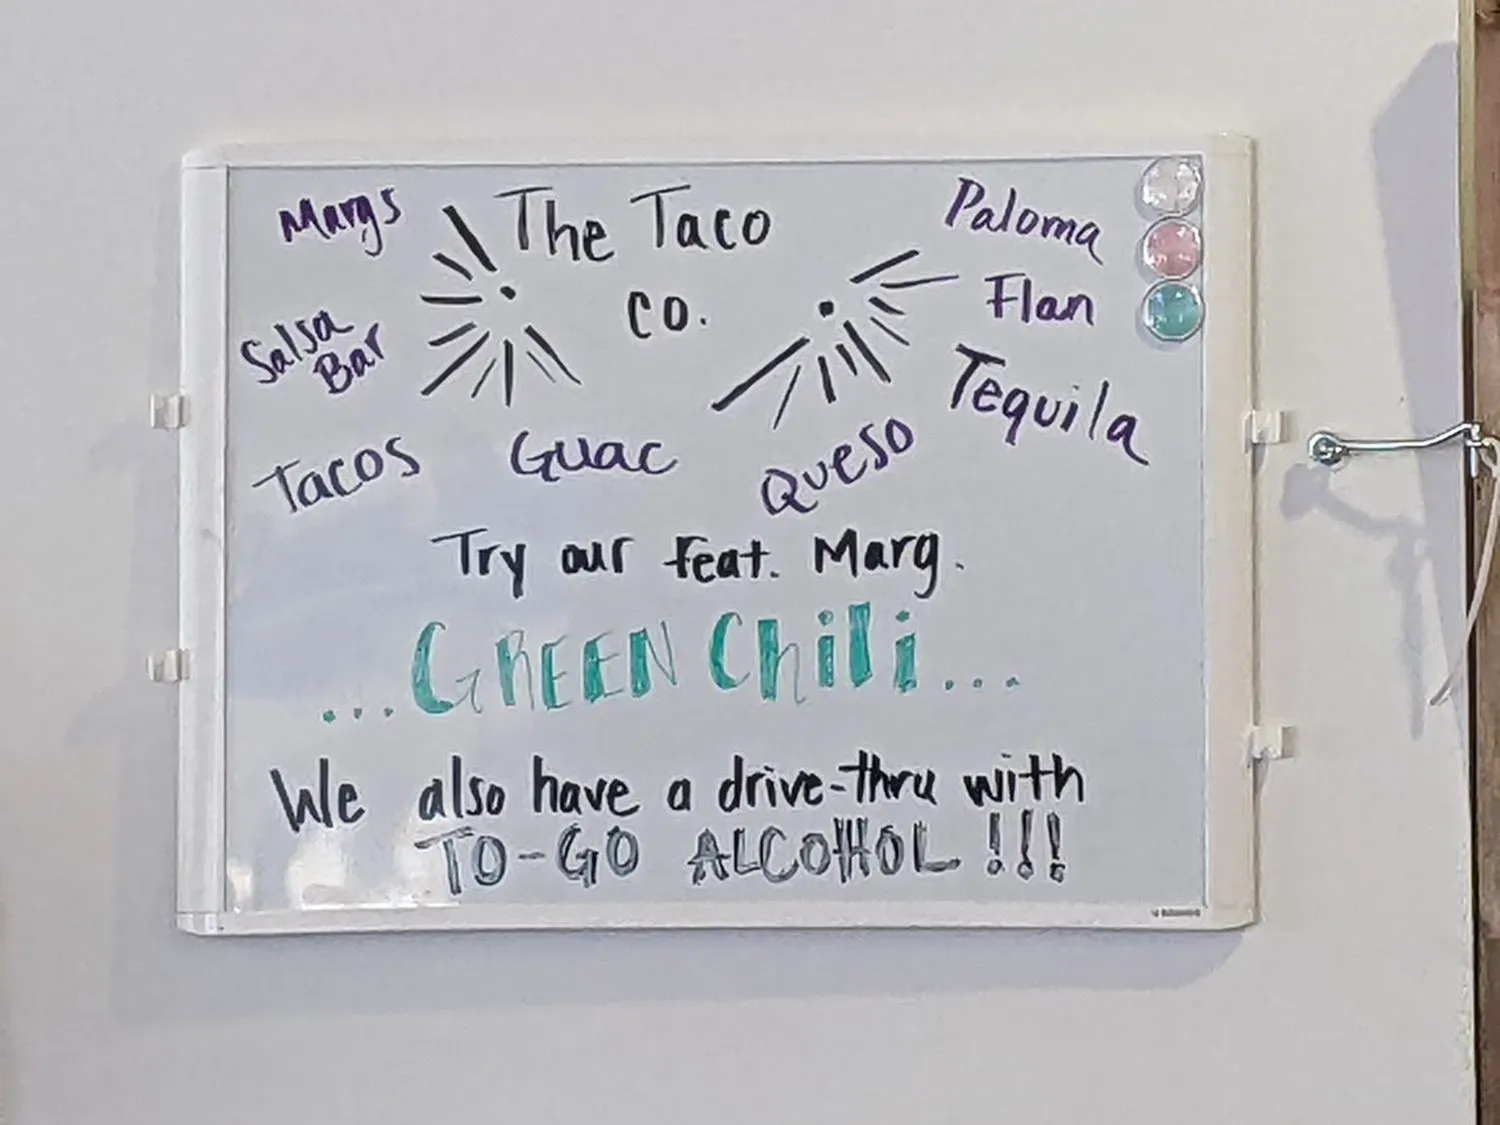 Margs
The Taco
co.
Paloma
Flan
Salsa
Bar
Tequila
Tacos
Guac
Queso
Try our feat. Marg.
...GREEN Chili...
We also have a drive-thru with
TO-GO ALCOHOL!!!